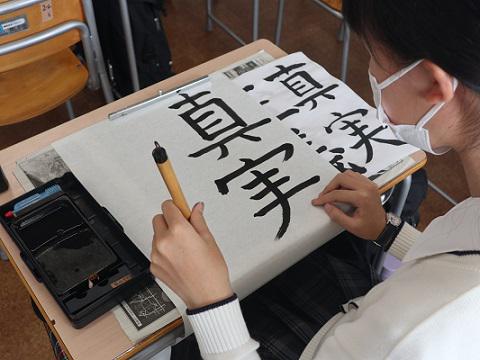 真
実
真
実